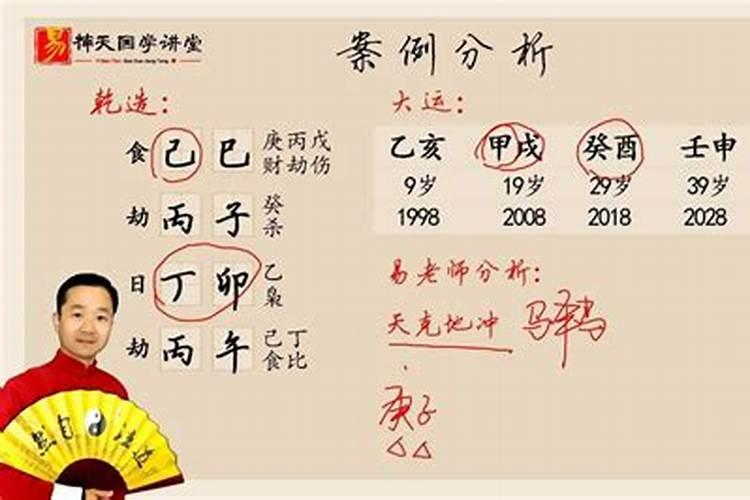 易 神天国学讲堂
案例分析
乾造：
食 己 巳 庚丙戊
财劫伤
劫 丙 子 癸
杀
日 丁 卯 乙
枭
劫 丙 午 己丁
食比
大运：
乙亥 甲戌 癸酉 壬申
9岁 19岁 29岁 39岁
1998 2008 2018 2028
易老师分析：
天克地冲
庚子
△△
道法自然